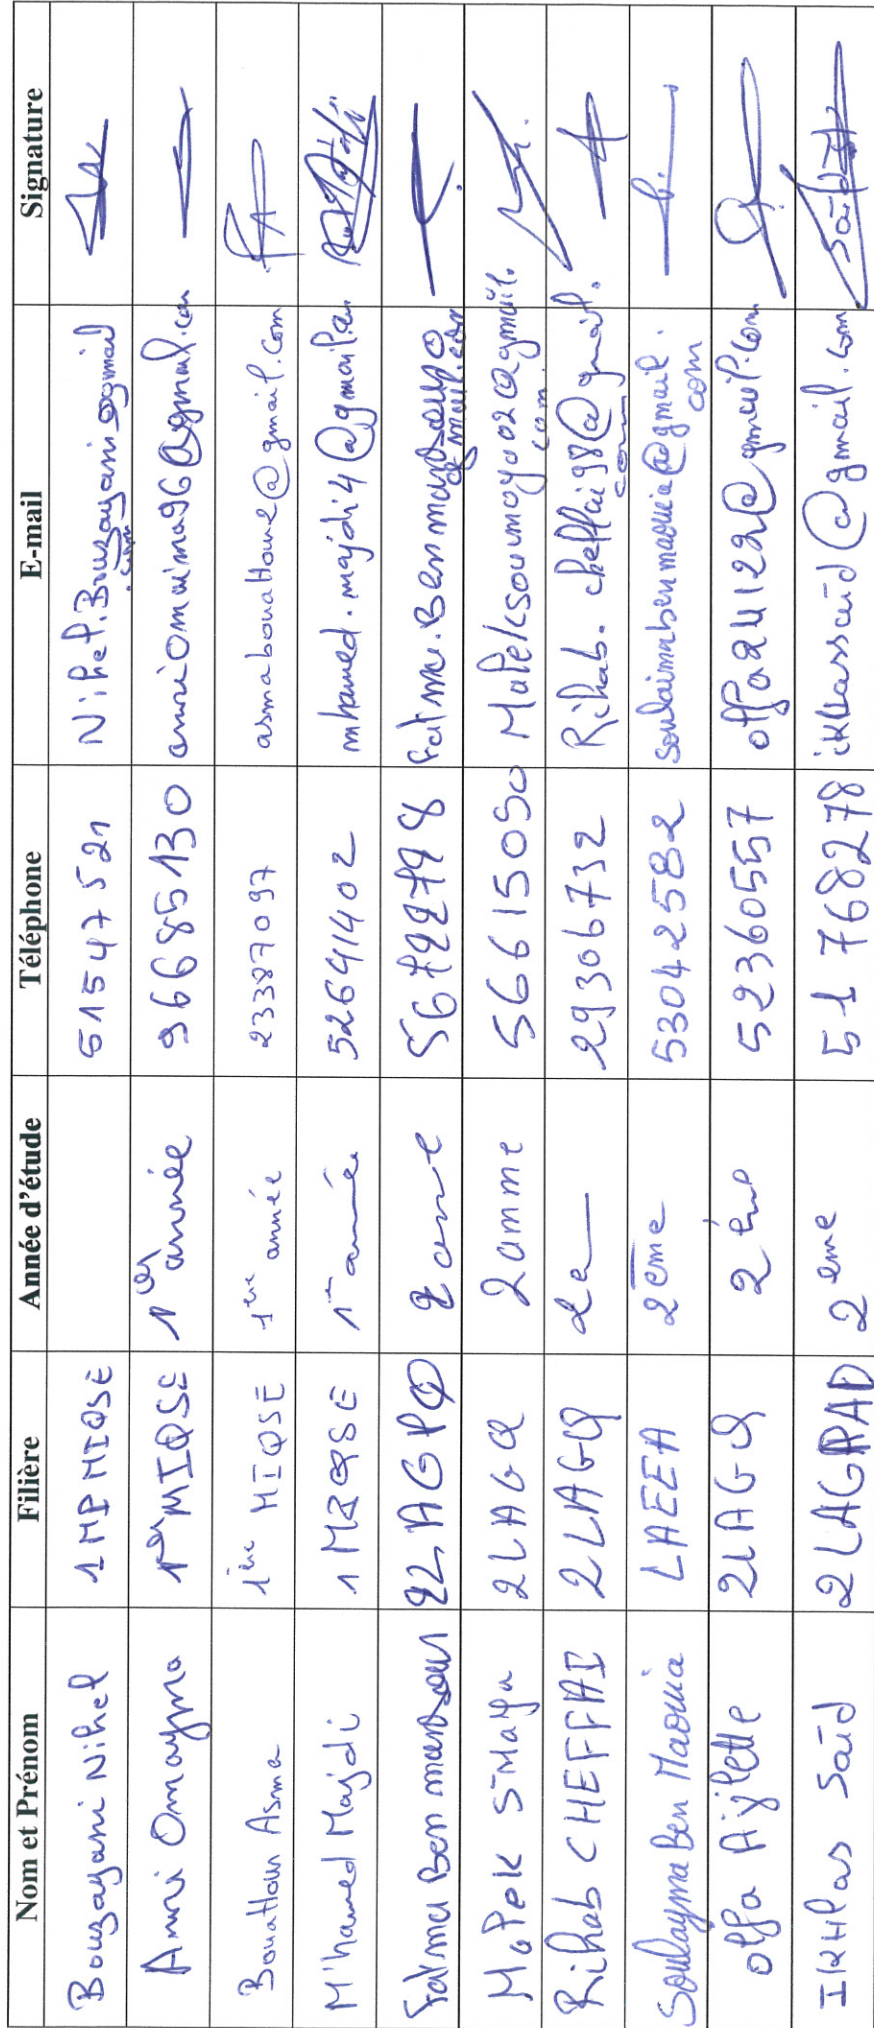 Nom et Prénom Filière Année d'étude Téléphone E-mail Signature
Bouzayani Nihel 1MP MIQSE 51547521 Nihel.Bouzayani@gmail
.com
Amri Omayma 1er MIQSE 1er année 96685130 amriomaima96@gmail.com
Bouattour Asma 1ère MIQSE 1ère année 23387097 asmabouattour2@gmail.com
M'hamed Majdi 1 MIQSE 1ère année 52641402 mhamed.majdi4@gmail.com
Fatma Ben 2LAGPQ 2 anne 56722798 Fatma.Ben
gmail.com
Malek Smaya 2LAGQ 2 anme 56615050 Maleksoumaya02@gmail.
com
Rihab CHEFFAI 2LAGQ 2e 29306732 Rihab.cheffai98@gmail.
com
Soulayma Ben Maouia LAEEA 2ème 53042582 soulaimabenmaouia@gmail.
com
olfa Ajlette 2LAGQ 2ème 52360557 olfa24122@gmail.com
IKHlas Saïd 2LAGPAD 2eme 51768278 ikhlassaid@gmail.com Saïd